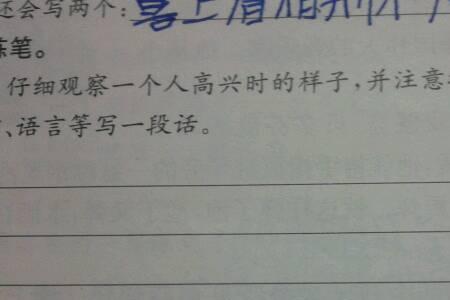 还会写两个：喜上眉梢
练笔。
仔细观察一个人高兴时的样子，并注意
、语言等写一段话。